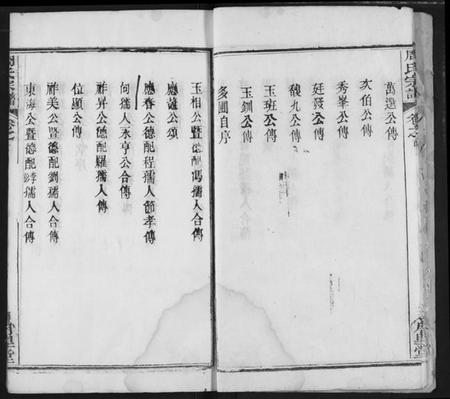 周氏宗譜
萬選公傳
次伯公傳
秀峯公傳
廷發公傳
魏九公傳
玉班公傳
玉釧公傳
多圃自序
玉相公暨德配馮孺人合傳
應龍公頌
應春公德配程孺人節孝傳
向孺人永亨公合傳
祥昇公德配羅孺人合傳
位顯公傳
祥美公暨德配劉孺人合傳
東海公暨德配李孺人合傳
周氏宗譜